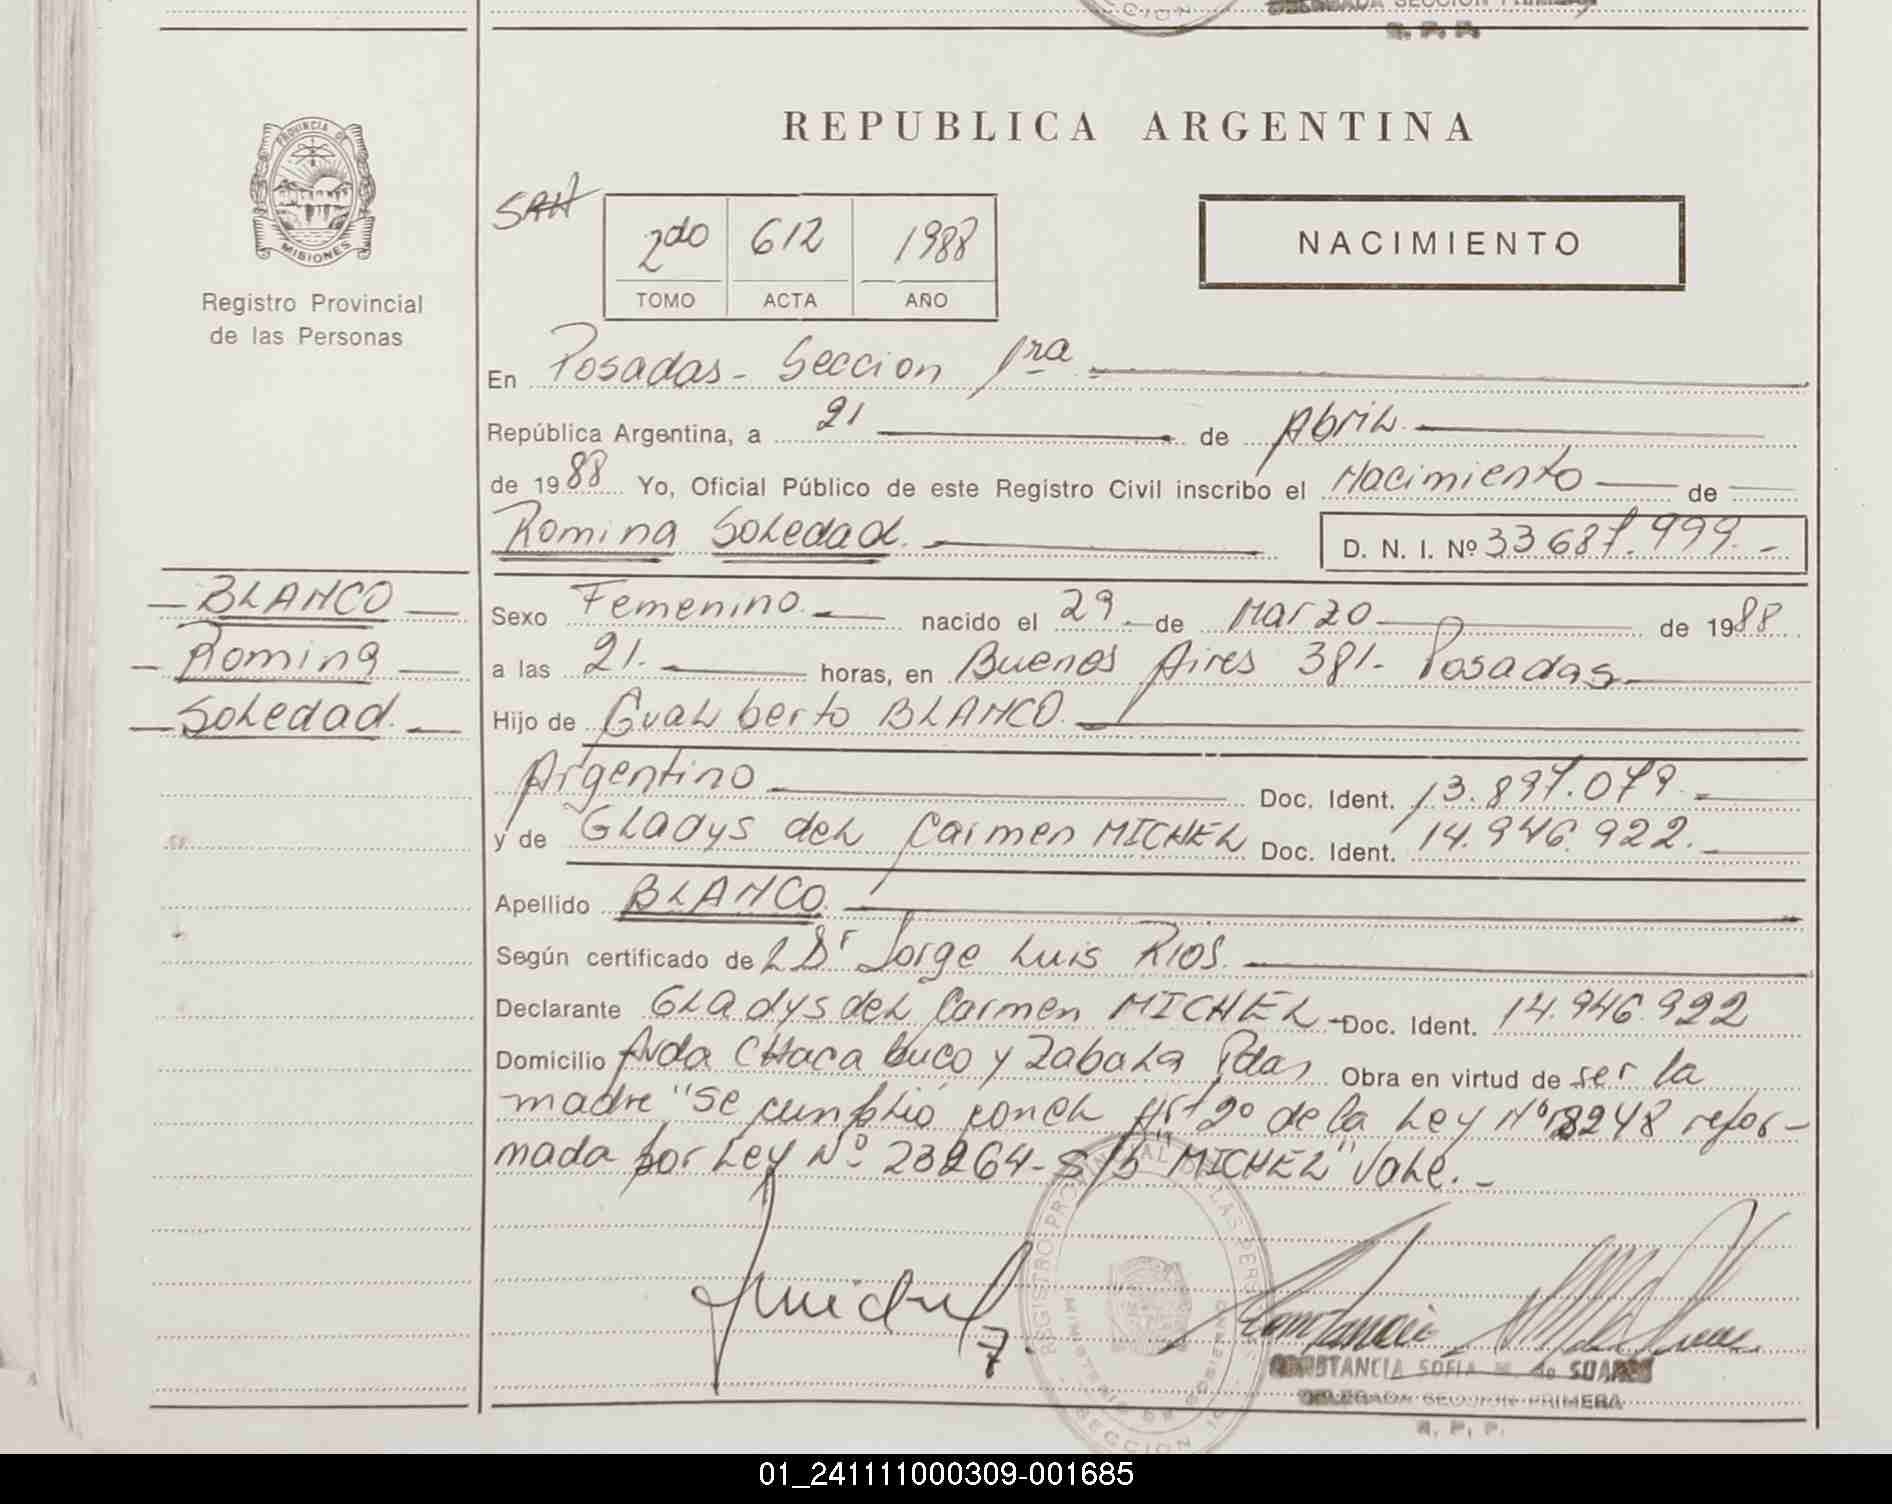 CION
DELEGADA SECCION PRIMERA
R. P. P.
PROVINCIA DE
MISIONES
Registro Provincial
de las Personas
REPUBLICA ARGENTINA
2do 612 1988
TOMO ACTA AÑO
NACIMIENTO
En Posadas - Seccion 1ra
República Argentina, a 21 de Abril
de 1988 Yo, Oficial Público de este Registro Civil inscribo el Nacimiento de
Romina Soledad. D. N. I. Nº 33 687.999.-
BLANCO
Romina
Soledad.
Sexo Femenino. nacido el 29 de Marzo de 1988
a las 21. horas, en Buenos Aires 381- Posadas
Hijo de Gualberto BLANCO.
Argentino Doc. Ident. 13.897.079.-
y de Gladys del Carmen MICHEL Doc. Ident. 14.946.922.-
Apellido BLANCO.
Según certificado de L Dr Jorge Luis RIOS.
Declarante Gladys del Carmen MICHEL - Doc. Ident. 14.946.922
Domicilio Avda CHacabuco y Zabala Pdas Obra en virtud de ser la
madre "Se cumplió con el Art 2º de la Ley Nº 18248 refor-
mada por Ley Nº 23264- S/b "MICHEL" Vale.-
REGISTRO PROVINCIAL DE LAS PERSONAS
MINISTERIO DE GOBIERNO
SECCION 1a
CONSTANCIA SOFIA M de SUAREZ
DELEGADA SECCION PRIMERA
R. P. P.
01_241111000309-001685